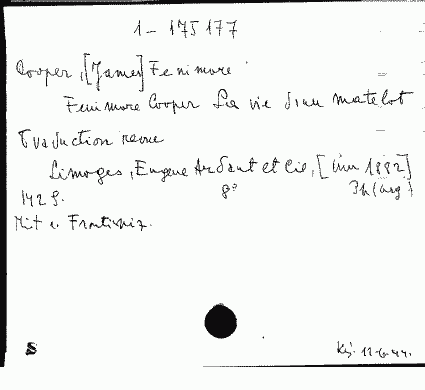 1-175177
Cooper, [James] Fenimore
Fenimore Cooper La vie d'un matelot
Traduction revue
Limoges, Eugene Ardant et Cie, [um 1882]
142 S. 8°
Mit e. Frontispiz.
S